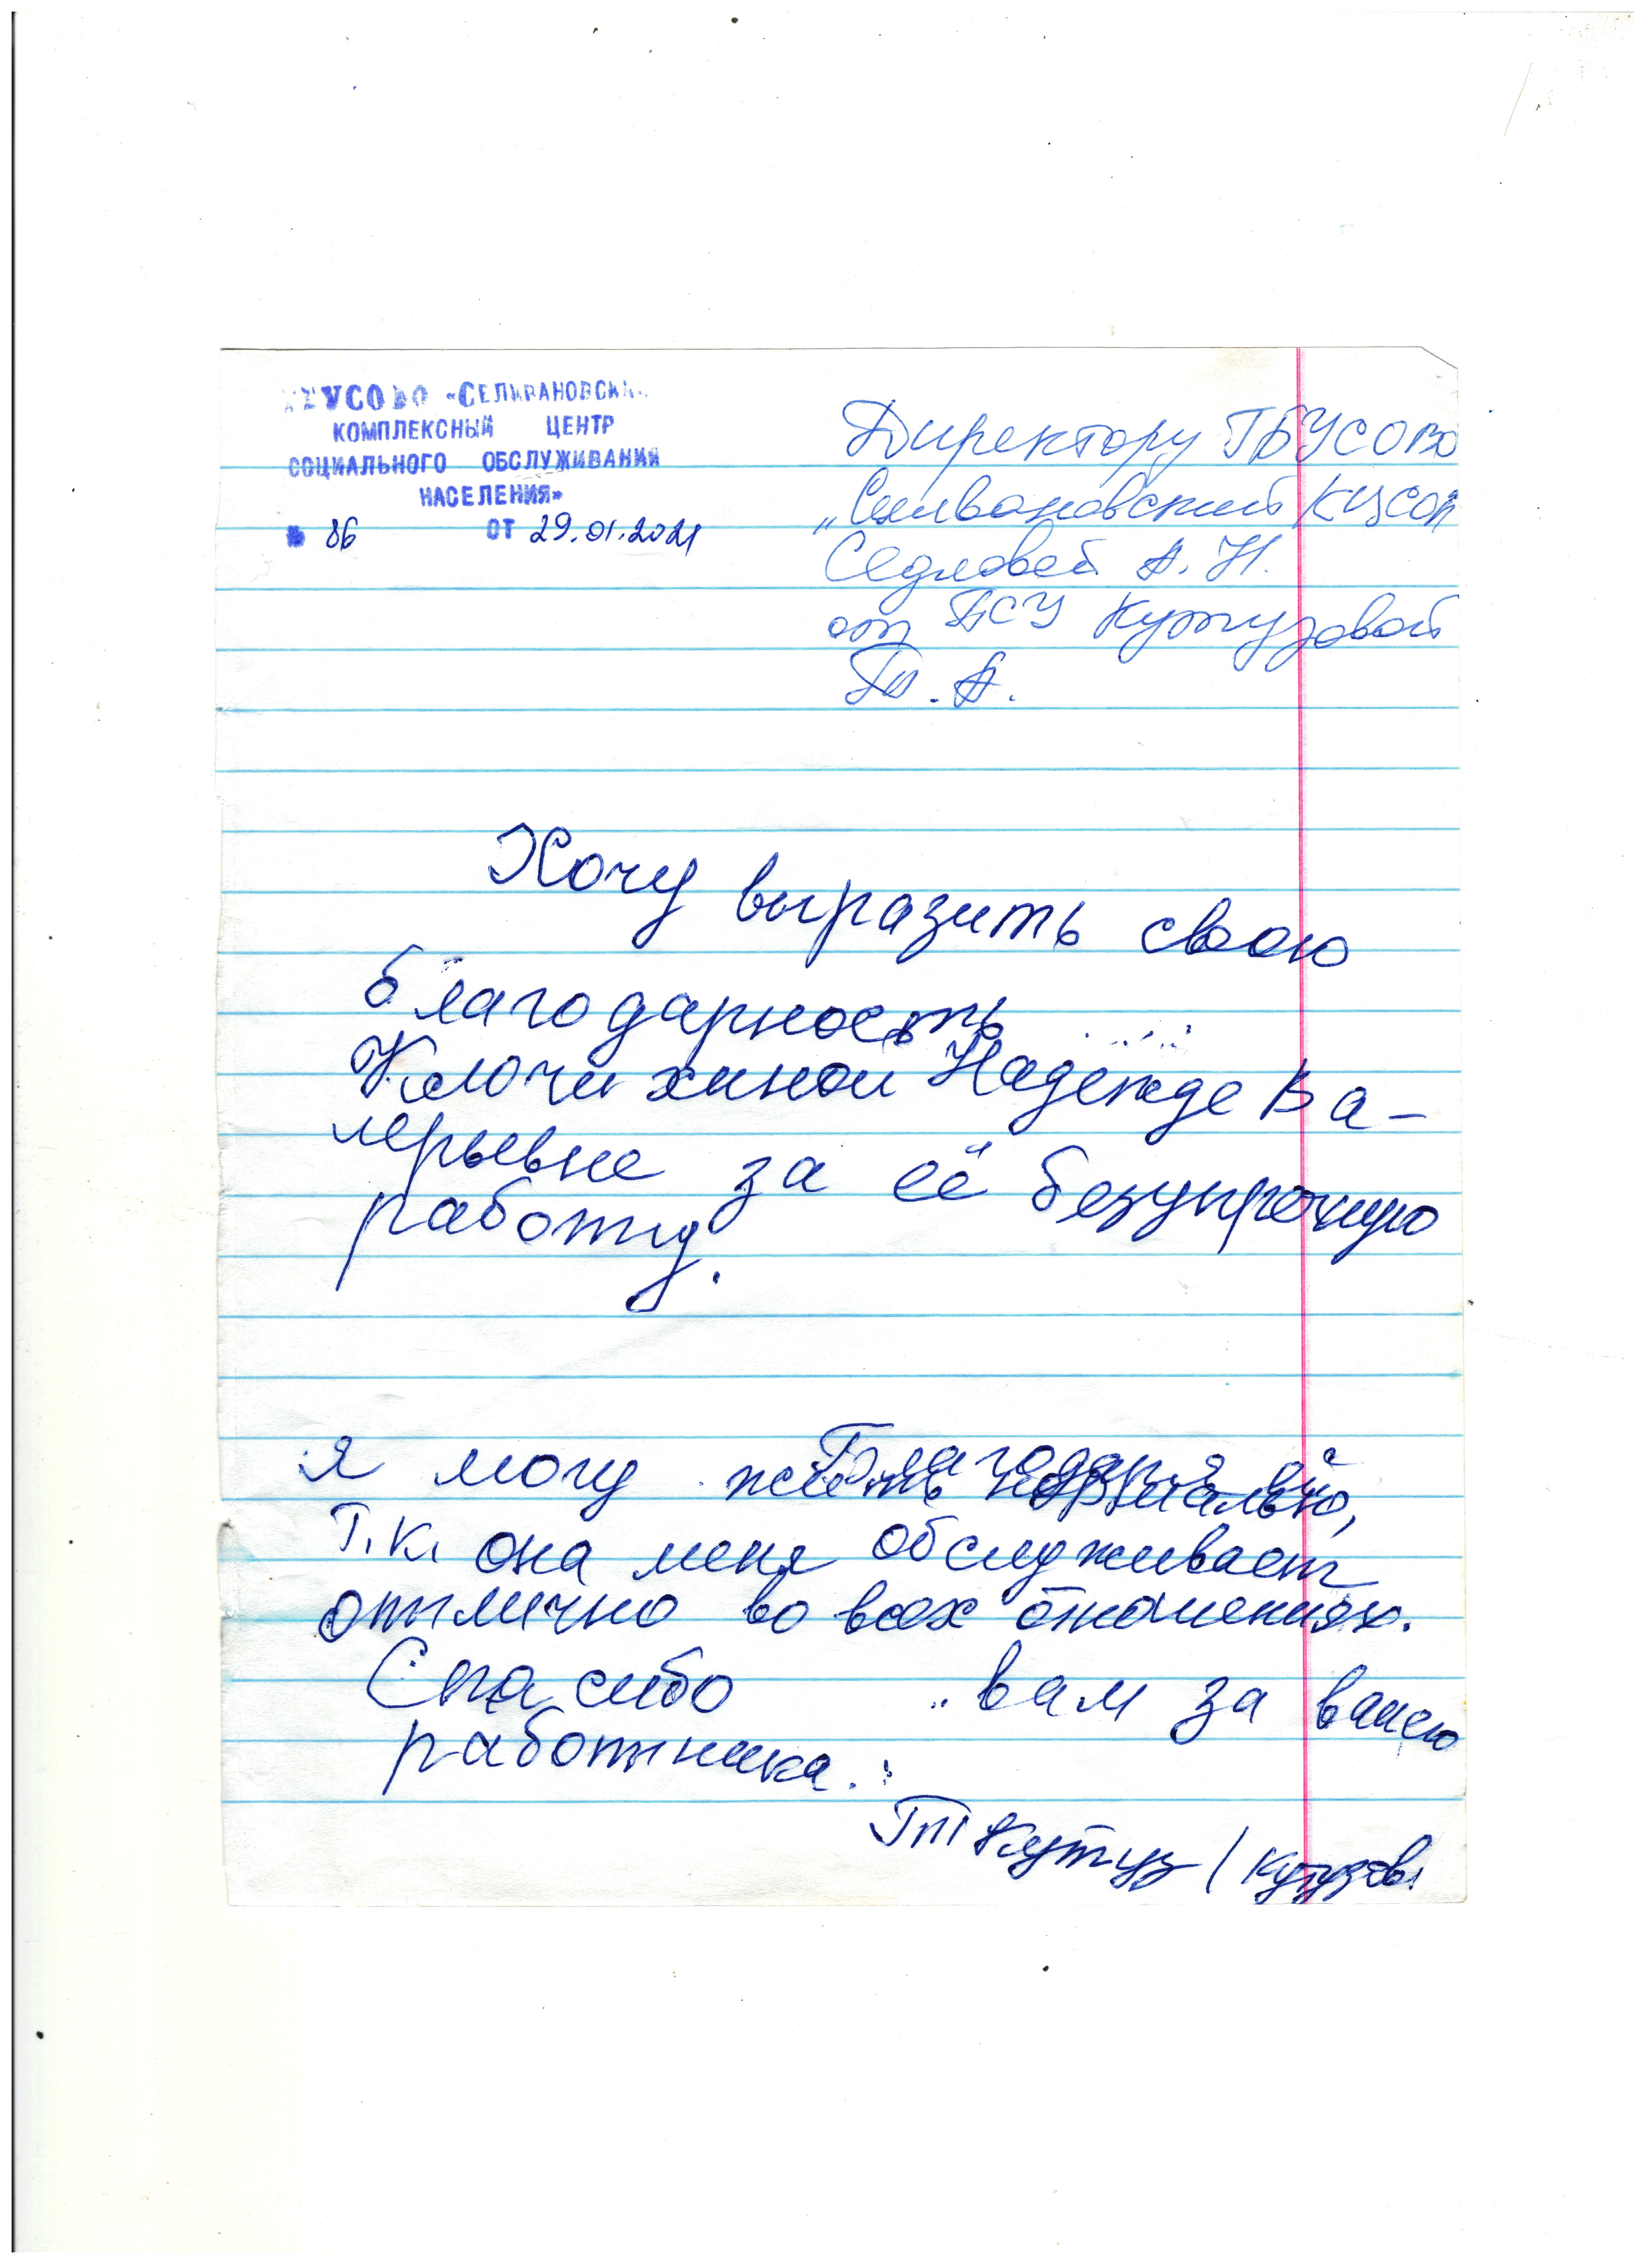 ГБУСОВО «СЕЛИВАНОВСКИЙ
КОМПЛЕКСНЫЙ ЦЕНТР
СОЦИАЛЬНОГО ОБСЛУЖИВАНИЯ
НАСЕЛЕНИЯ»
№ 86 ОТ 29.01.2021
Директору ГБУСОВО
„Селивановский КЦСОН
Седловой А. Н.
от ПСУ Кутузовой
Т. А.
Хочу выразить свою
благодарность
Ключихиной Надежде Ва-
лерьевне за её безупречную
работу.
Благодаря ей
я могу жить нормально,
Т.к. она меня обслуживает
отлично во всех отношениях.
Спасибо вам за вашего
работника.
Кутуз / Кутузова